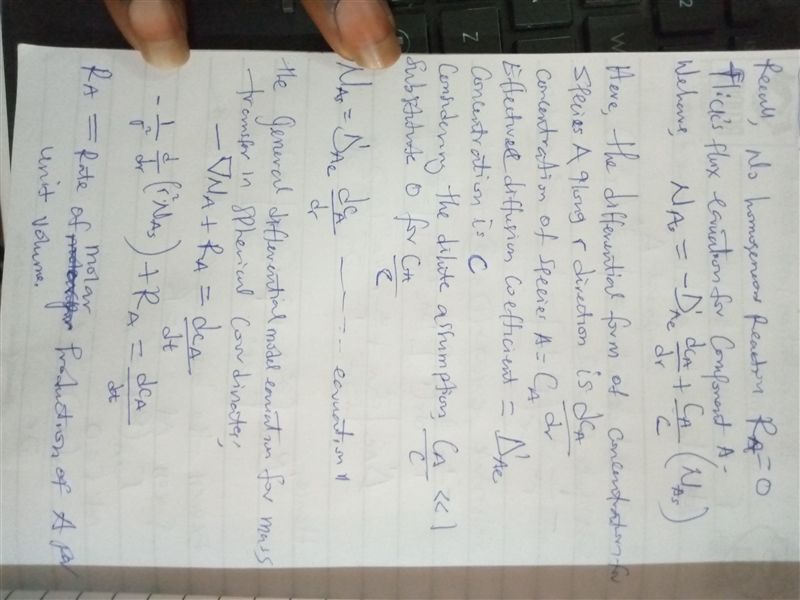 Recall, No homogeneous Reaction R_A = 0
Flick's flux equation for Component A-
We have, N_As = -D'_Ae dC_A/dr + C_A/C (N_As)
Here, the differential form of concentration for
Species A along r direction is dC_A/dr
concentration of species A = C_A
Effective diffusion coefficient = D'_Ae
Concentration is C
Considering the dilute assumption, C_A/C << 1
Substitute 0 for C_A/C
N_As = D'_Ae dC_A/dr ----- equation 1
the general differential model equation for mass
transfer in spherical Coordinates,
-∇N_A + R_A = dC_A/dt
-1/r² d/dr (r² N_As) + R_A = dC_A/dt
R_A = Rate of molar Production of A per
unit volume.